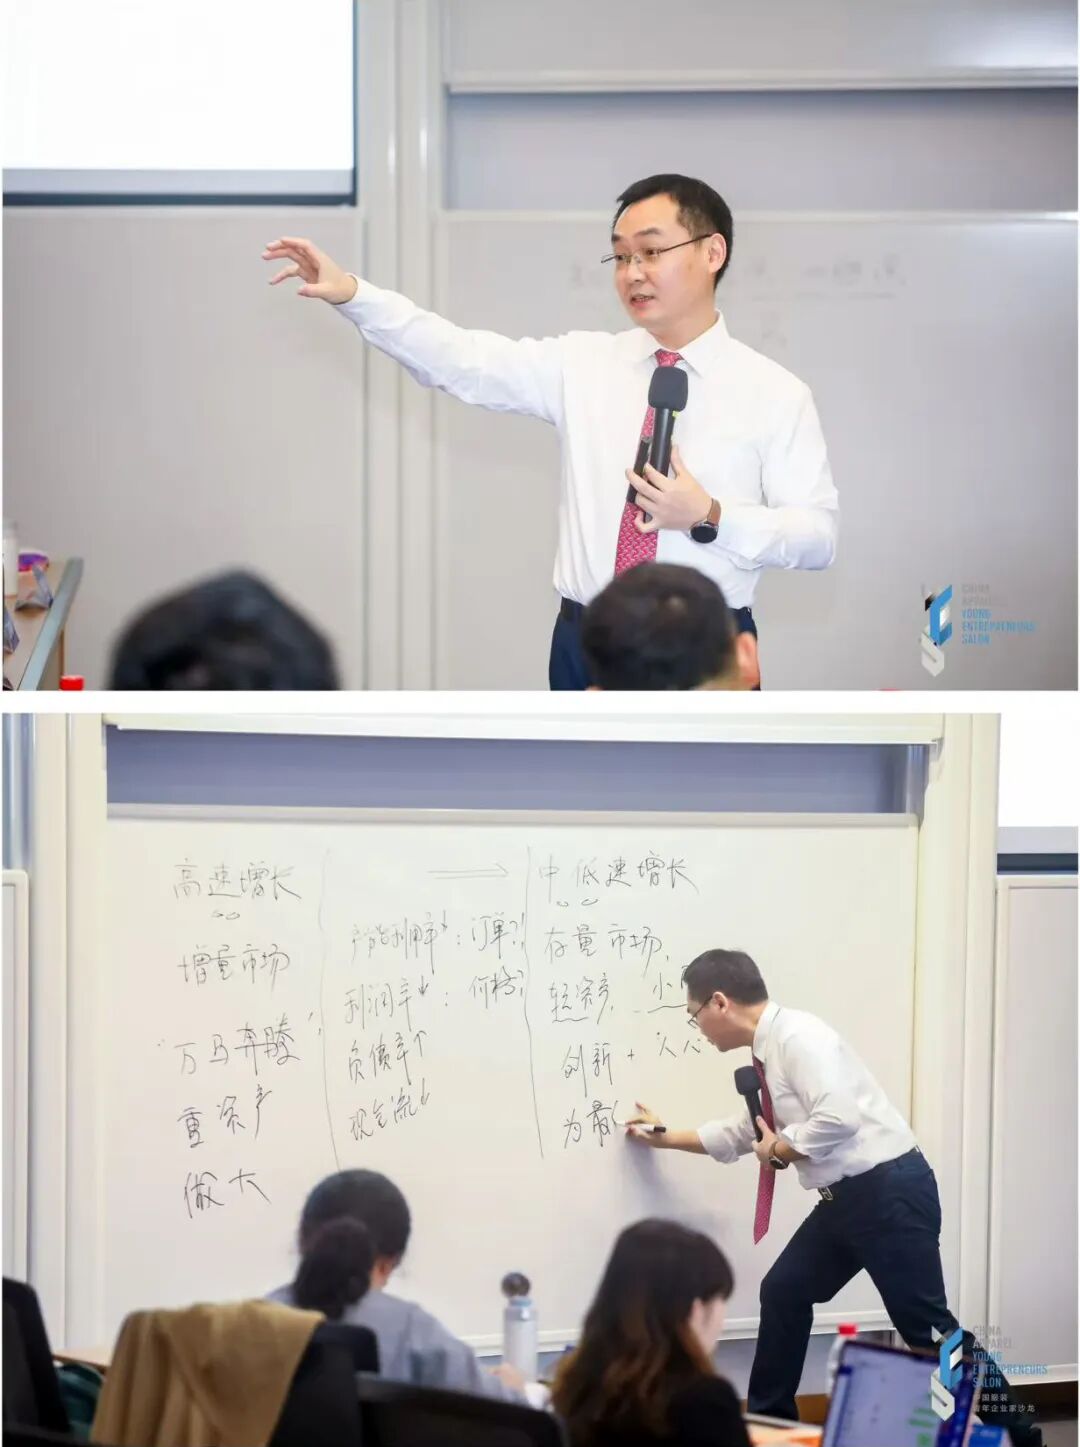 CHINA
APPAREL
YOUNG
ENTREPRENEURS
SALON
高速增长
增量市场
"万马奔腾"
重资产
做大
产能利用率↓：订单?!
利润率↓：价格?
负债率↑
现金流↓
→
中低速增长
存量市场
轻资产
创新 +
为最
CHINA
APPAREL
YOUNG
ENTREPRENEURS
SALON
中国服装
青年企业家沙龙